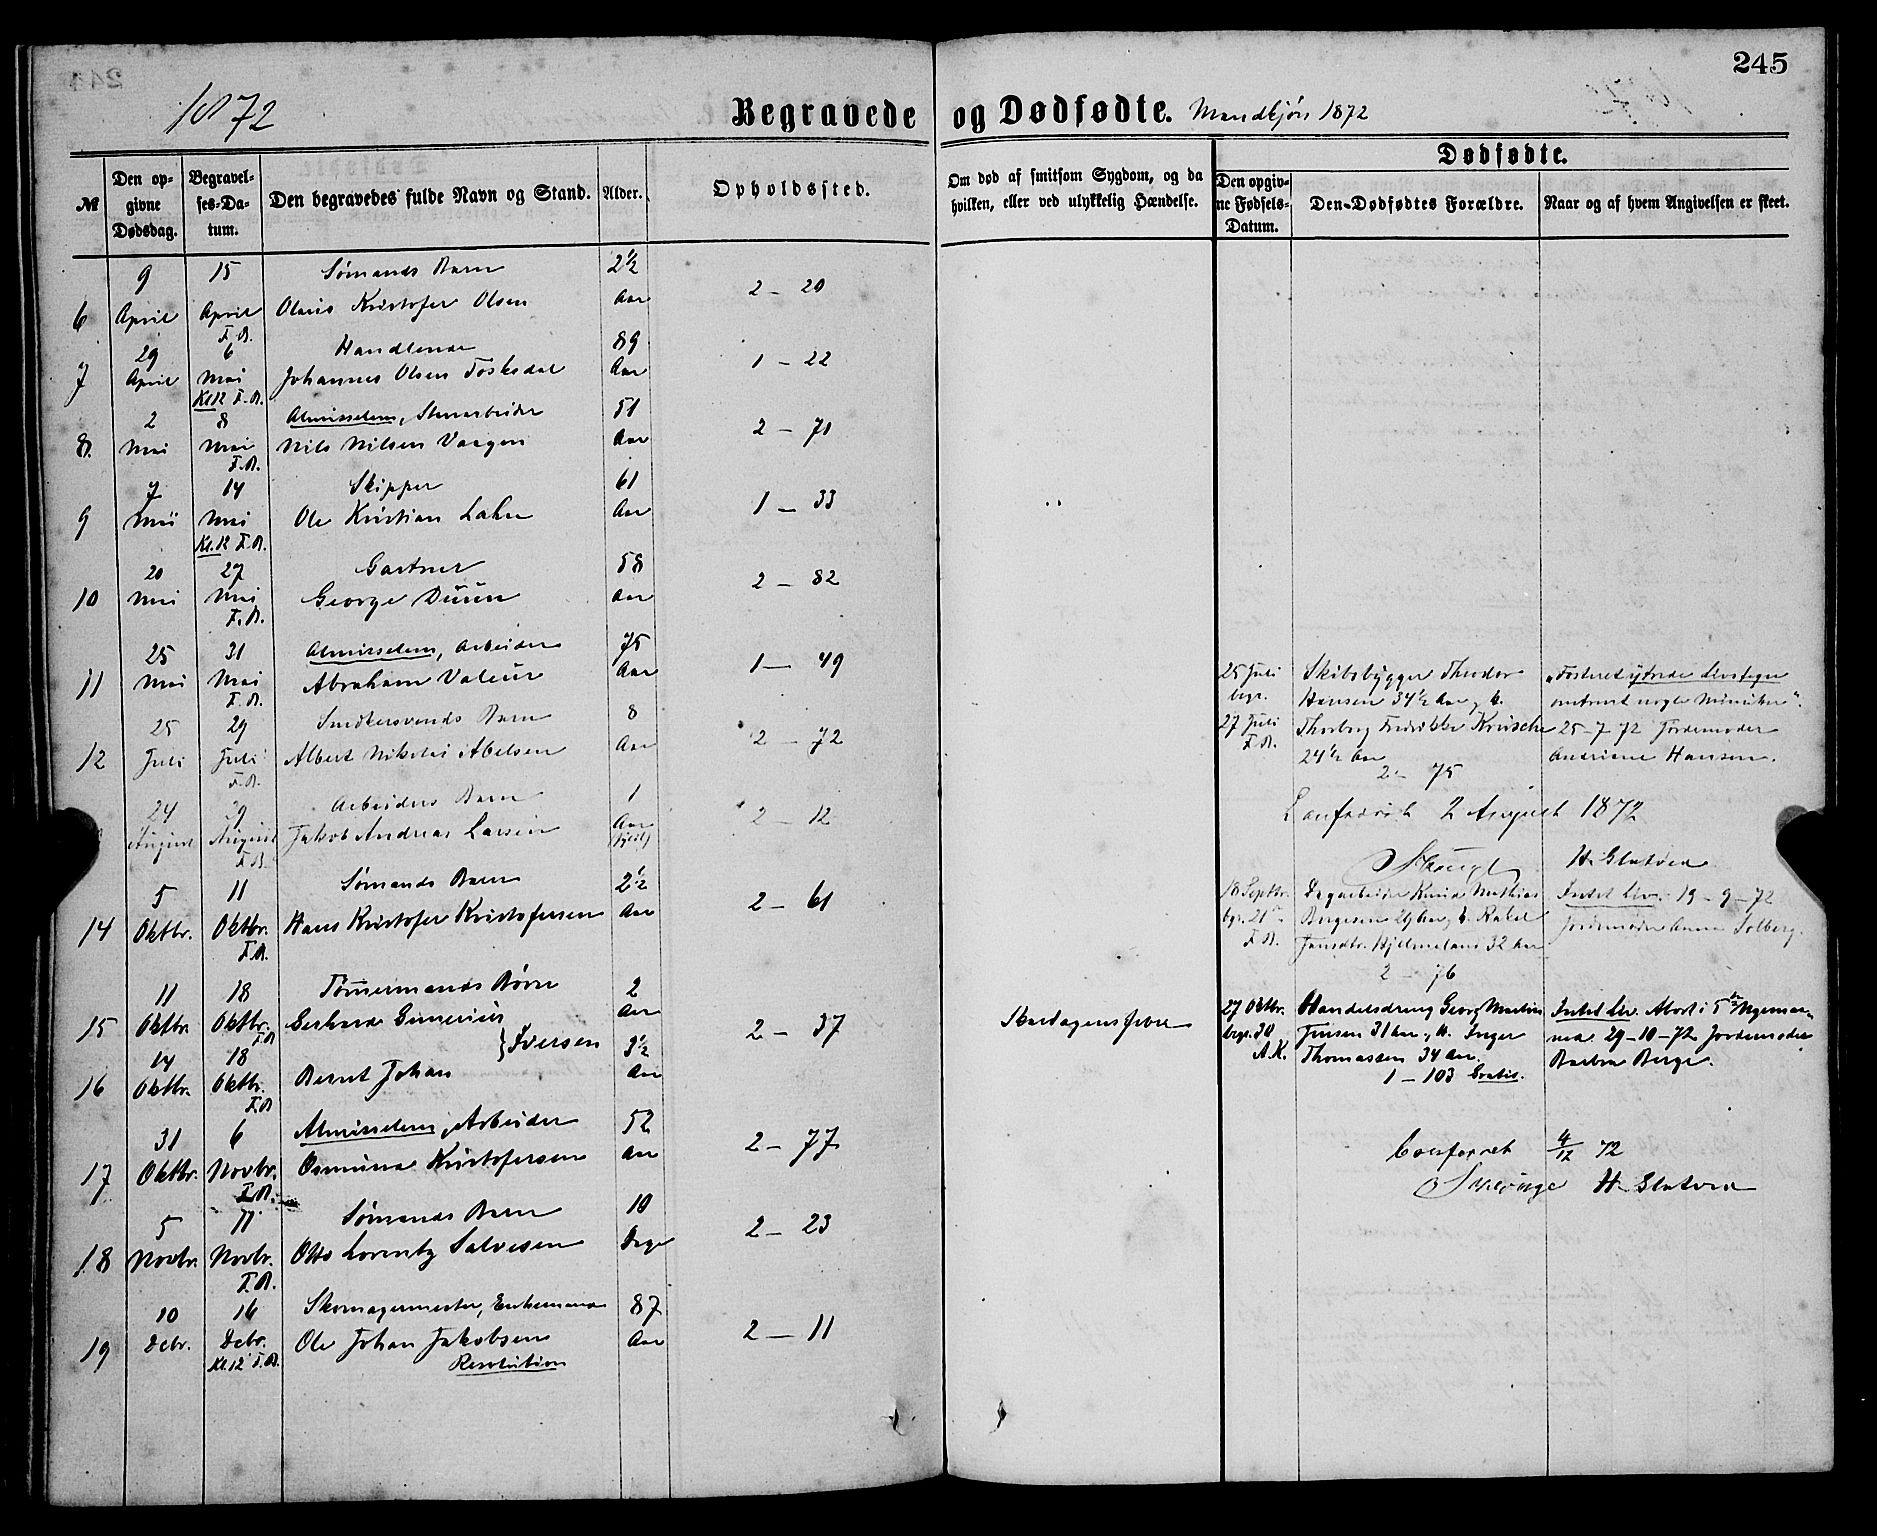 245
1872
Begravede og Dødfødte. Mandkjøn 1872
№
Den opgivne Dødsdag.
Begravelses-Datum.
Den begravedes fulde Navn og Stand.
Alder.
Opholdssted.
Om død af smitsom Sygdom, og da hvilken, eller ved ulykkelig Hændelse.
Dødfødte.
Den opgivne Fødsels-Datum.
Den Dødfødtes Forældre.
Naar og af hvem Angivelsen er skeet.
9 15 Sømands Barn 2½
6 April April Olaus Kristofer Olsen Aar 2 – 20
F.B.
29 6 Handlende 89
7 April Mai Johannes Olsen Foskedal Aar 1 – 22
Kl.12 F.B.
2 8 Almisselem, Stenarbeider 51
8. Mai Mai Nils Nilsen Aar 2 – 71
F.B.
7 14 Skipper 61
9 Mai Mai Ole Kristian Aar 1 – 33
Kl.12 F.B.
20 27 Gartner 58
10 Mai Mai George Duun Aar 2 – 82
F.B.
25 31 Almisselem, Arbeider 75
11 Mai Mai Abraham Valeur Aar 1 – 49
F.B.
25 29 Smedesvends Barn 8
12 Juli Juli Albert Nikolai Abelsen Aar 2 – 72
F.B.
24 29 Arbeiders Barn 1
August August Jakob Andreas Larsen Aar 2 – 12
F.B.
5 11 Sømands Barn 2½
14 Oktbr. Oktbr. Hans Kristofer Kristofersen Aar 2 – 61
F.B.
11 18 Tømmermands Børn 2
15 Oktbr. Oktbr. Gerhard Aar
F.B. } Iversen 2 – 37
14 18 3½
16 Oktbr. Oktbr. Bernt Johan Aar
F.B.
31 6 Almisselem, Arbeider 52
17 Oktbr. Novbr. Osmund Kristofersen Aar 2 – 77
F.B.
5 11 Sømands Barn 10
18 Novbr. Novbr. Otto Lorentz Salvesen Dage 2 – 23
F.B.
10 16 Skomagermester, Enkemand 87
19 Debr. Debr. Ole Johan Jakobsen Aar 2 – 11
Kl.12 F.B. Resolution
Skarlagensfeber
25 Juli Skibsbygger Theodor „Fosteret ytrede Livstegn
begr. Hansen 34½ Aar, og omtrent nogle Minutter“.
27 Juli Thorborg Fredrikke 25-7 72 Jordemoder
F.B. 24½ Aar Andriane Hansen.
2 – 75
Confereret 2 August 1872
H. Slotved
18 Septbr. Dagarbeider Knud Mathias Intet Liv. 19-9-72
bgr. 21 Børgesen 29 Aar, og Rakel Jordemoder Anna Solberg.
F.B. Hjelmeland 32 Aar
2 – 76
27 Oktbr. Handelsdreng Georg Martin Intet Liv. Abort i 5te
begr. 30 Jensen 31 Aar, H. Inger ned. 29-10-72 Jordemoder
A.K. Thomassen 34 Aar. Barbra Berge.
1 – 103 Gratis.
Confereret 4/12 72
H. Slotved